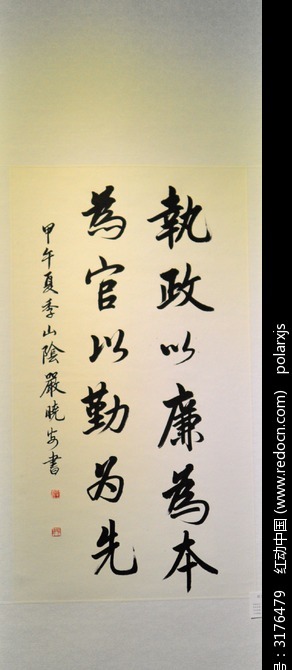 執政以廉為本
為官以勤为先
甲午夏季山陰嚴曉安書
号:3176479 红动中国 (www.redocn.com) polarxjs